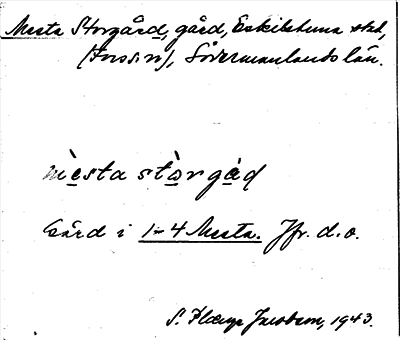 Mesta Storgård, gård, Eskilstuna stad,
(Fors sn), Södermanlands län.
mèsta stòrgåd
Gård i 1-4 Mesta. Jfr. d. o.
S. Jacobsen, 1943.